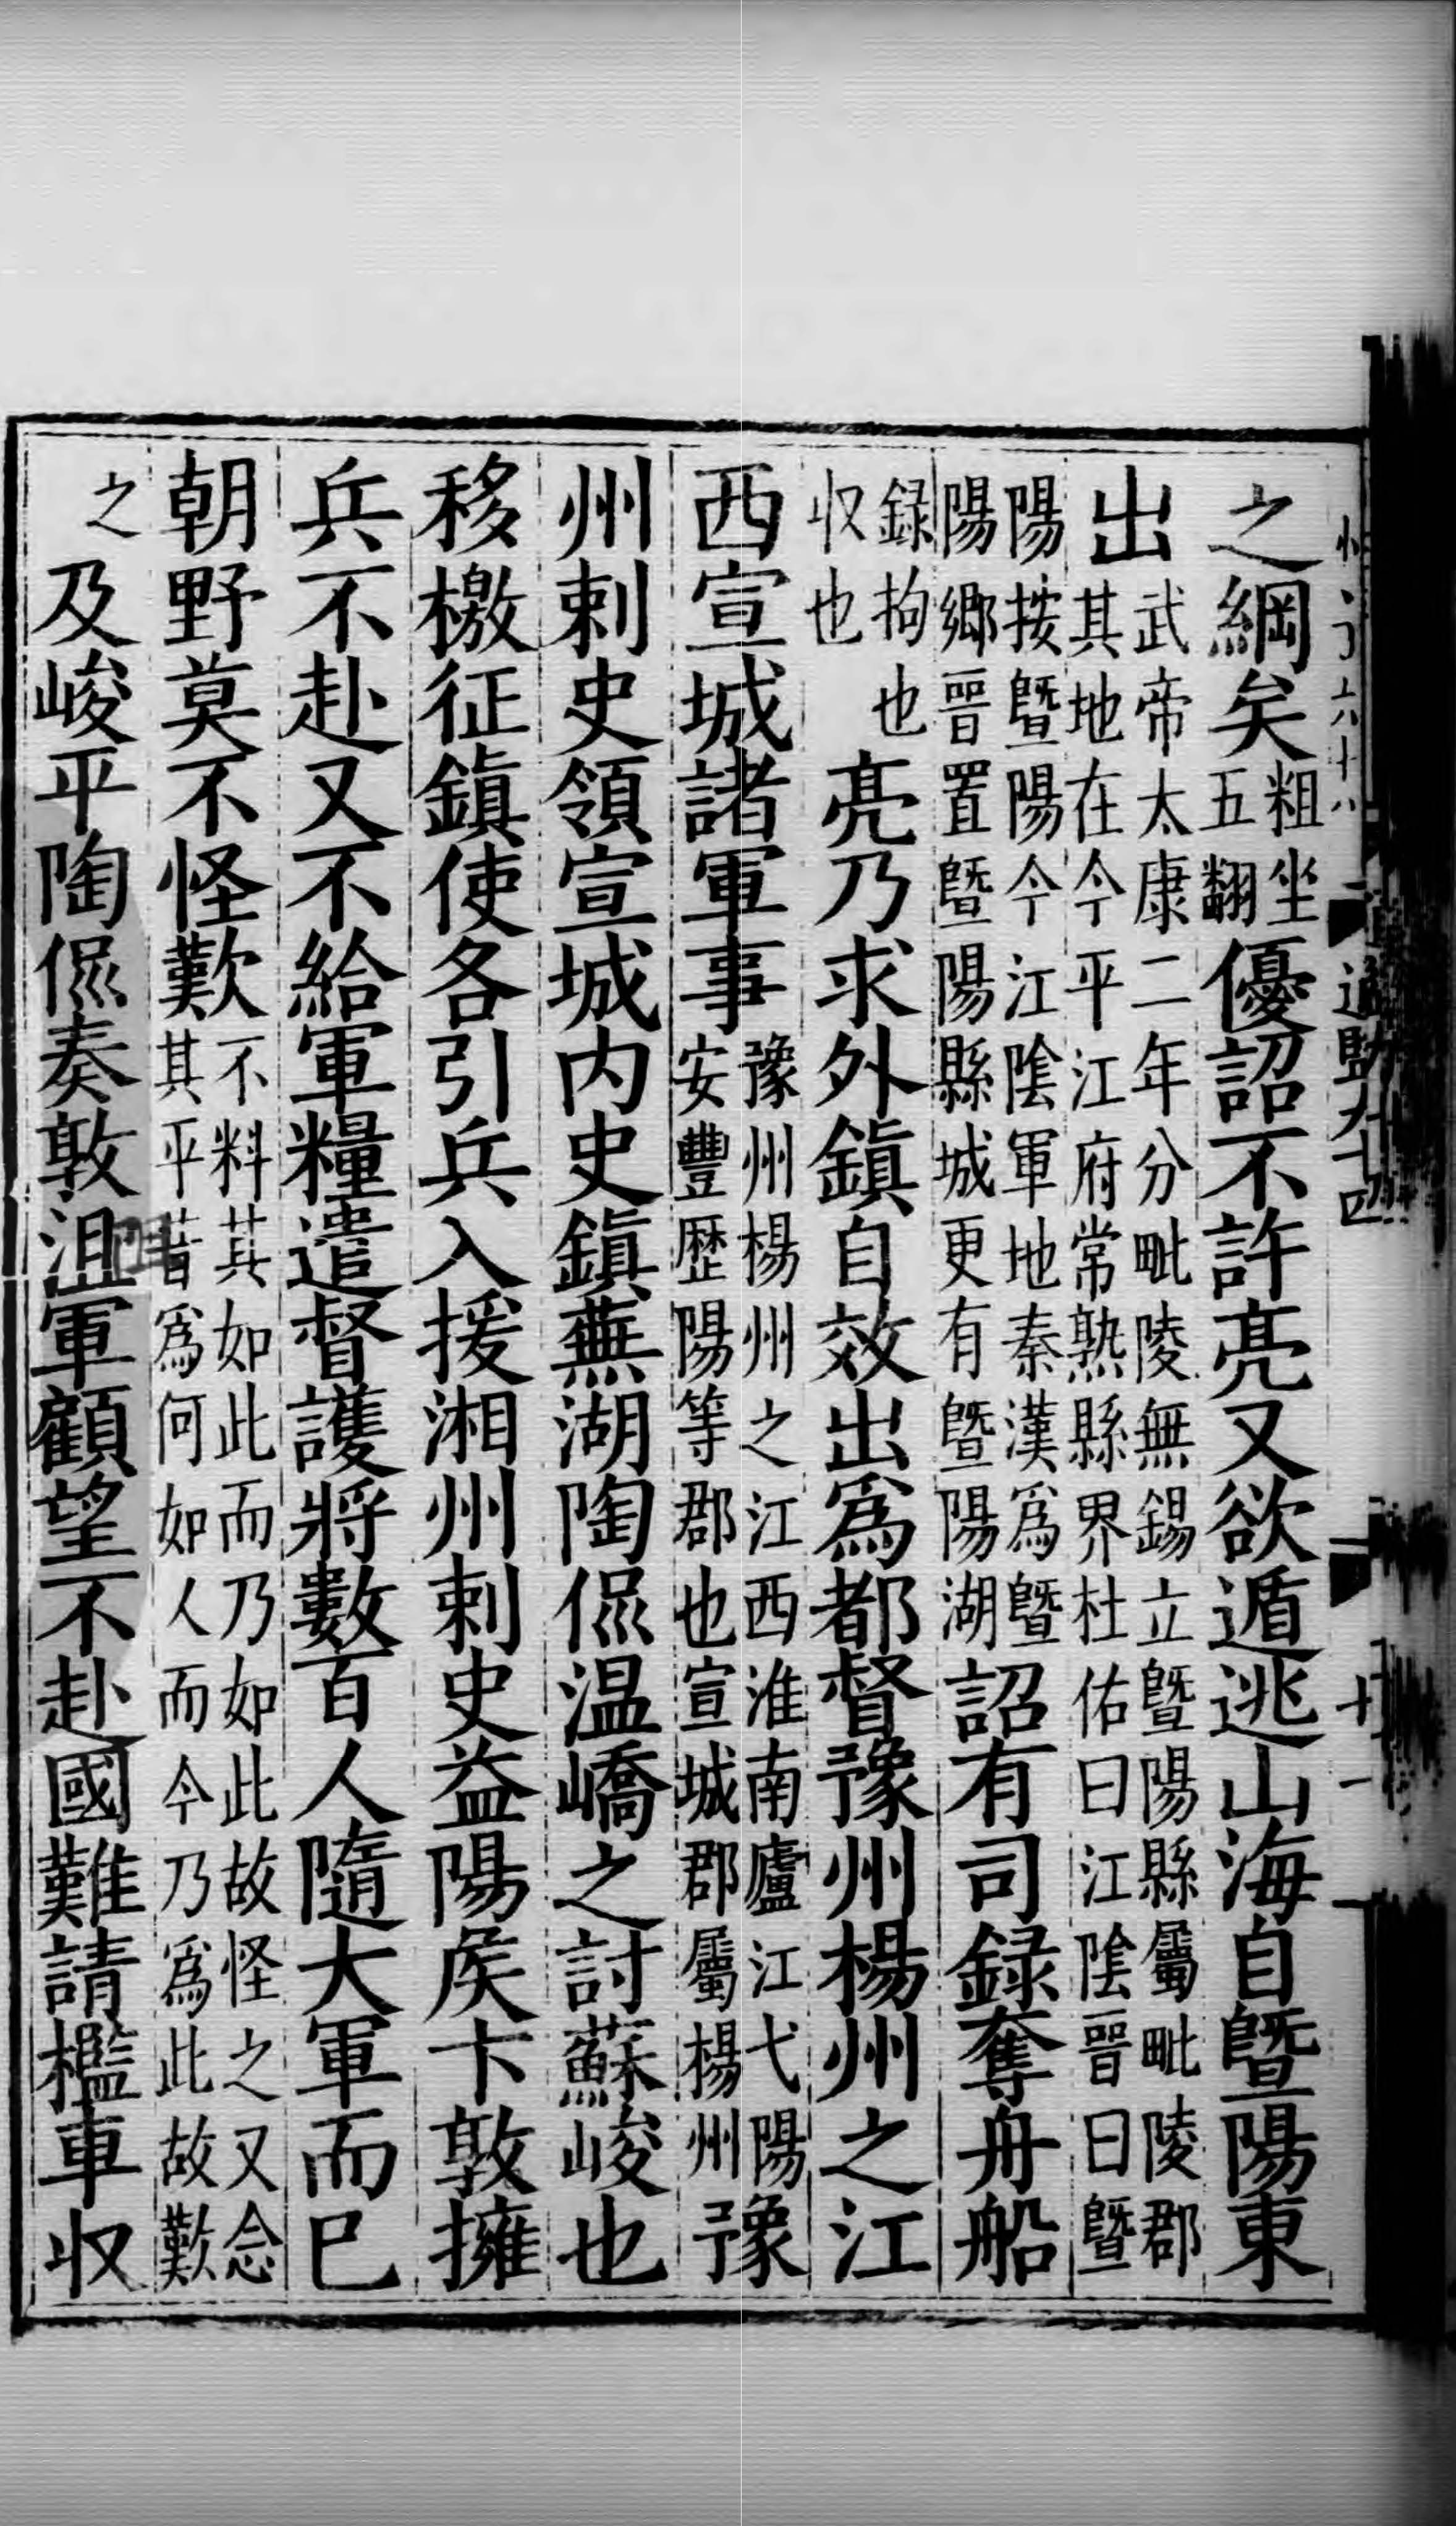 之綱矣粗坐五翻優詔不許亮又欲遁逃山海自曁陽東
出武帝太康二年分毗陵無錫立曁陽縣屬毗陵郡其地在今平江府常熟縣界杜佑曰江陰晉曰曁
陽按曁陽今江陰軍地秦漢爲曁陽鄉晉置曁陽縣城更有曁陽湖詔有司録奪舟船
録拘也収也亮乃求外鎭自效出爲都督豫州楊州之江
西宣城諸軍事豫州楊州之江西淮南廬江弋陽安豐歴陽等郡也宣城郡屬楊州豫
州刺史領宣城内史鎭蕪湖陶侃温嶠之討蘇峻也
移檄征鎭使各引兵入援湘州刺史益陽侯卞敦擁
兵不赴又不給軍糧遣督護將數百人隨大軍而已
朝野莫不怪歎不料其如此而乃如此故怪之又念其平昔爲何如人而今乃爲此故歎
之及峻平陶侃奏敦沮軍顧望不赴國難請檻車収